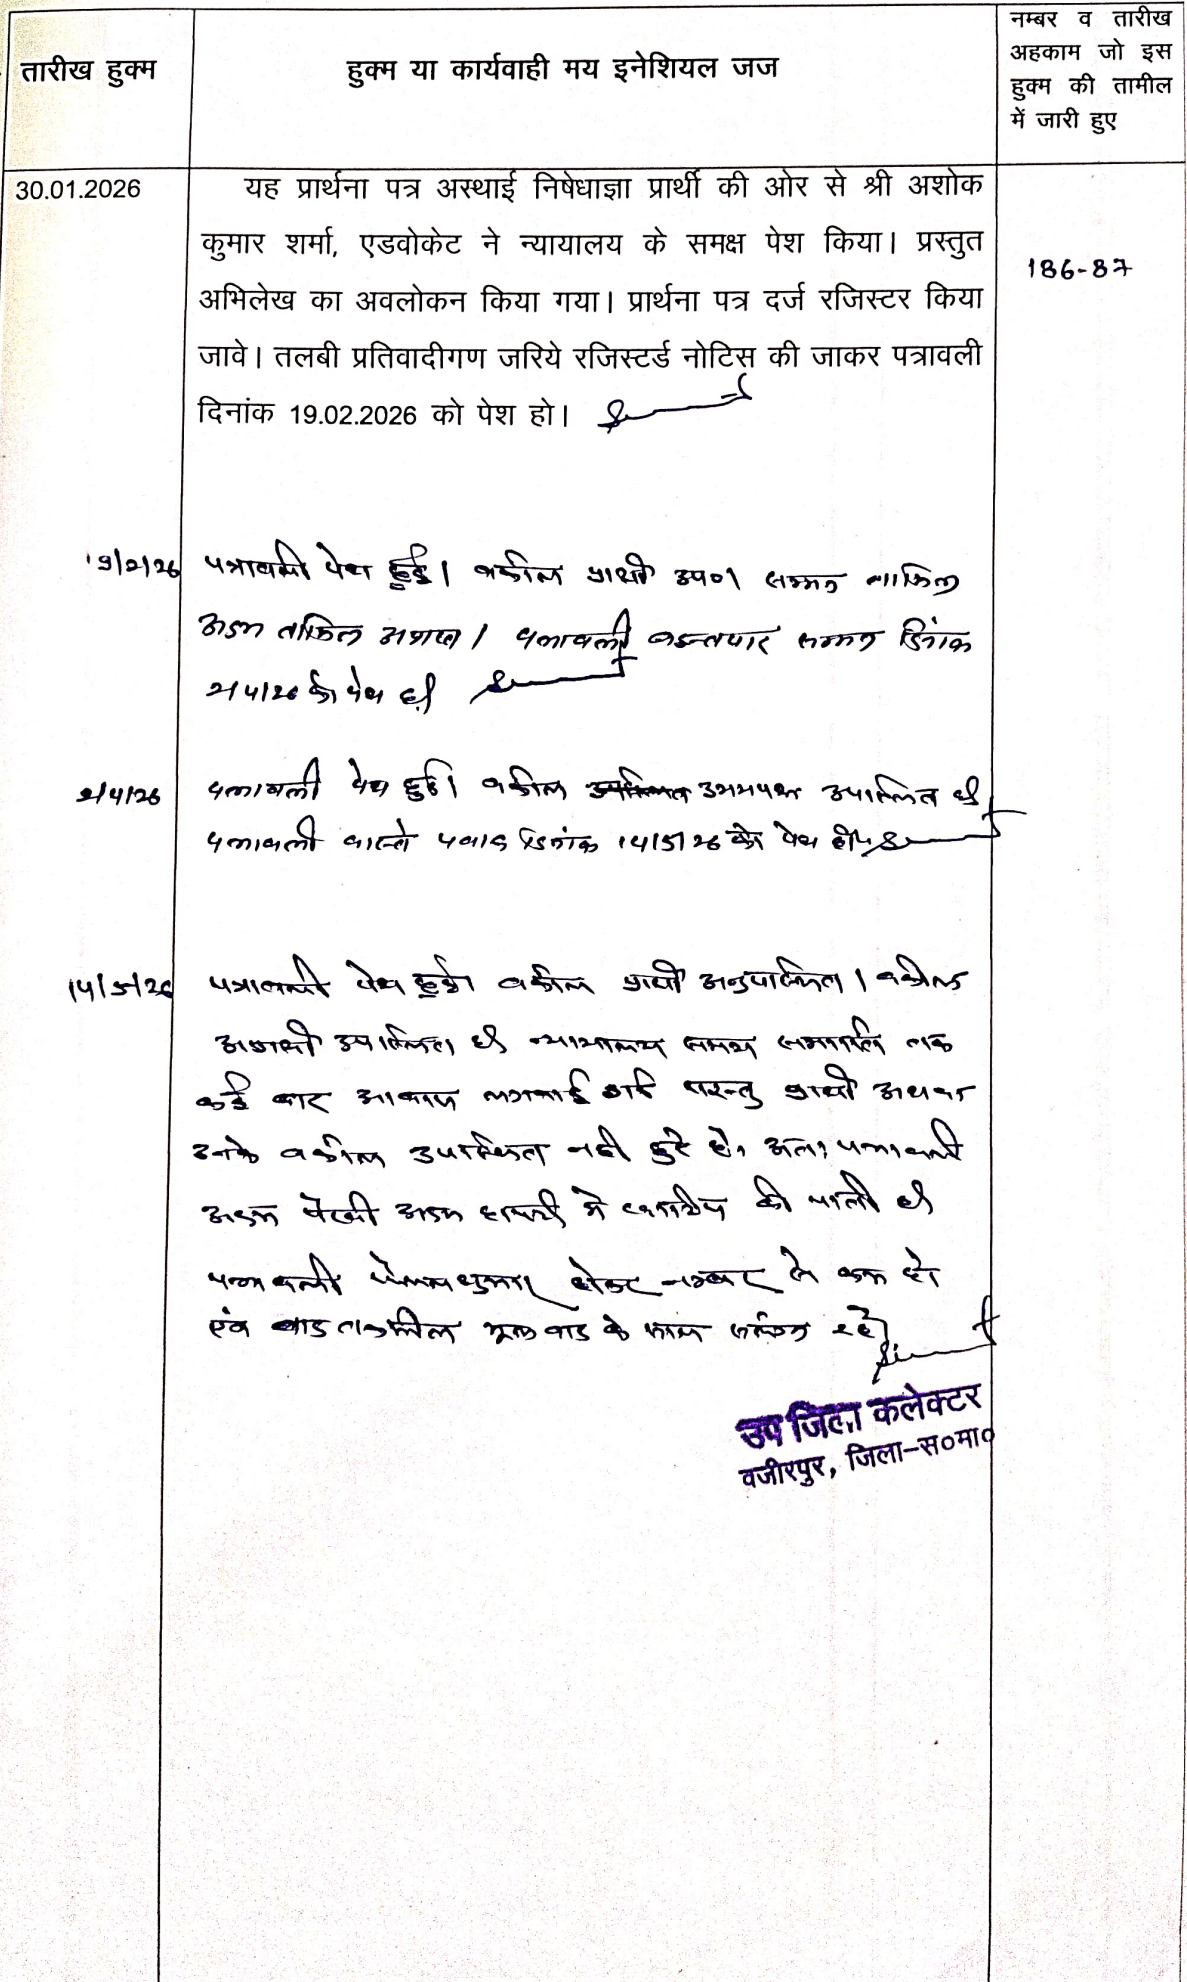 तारीख हुक्म
हुक्म या कार्यवाही मय इनेशियल जज
नम्बर व तारीख
अहकाम जो इस
हुक्म की तामील
में जारी हुए
30.01.2026
यह प्रार्थना पत्र अस्थाई निषेधाज्ञा प्रार्थी की ओर से श्री अशोक
कुमार शर्मा, एडवोकेट ने न्यायालय के समक्ष पेश किया। प्रस्तुत
अभिलेख का अवलोकन किया गया। प्रार्थना पत्र दर्ज रजिस्टर किया
जावे। तलबी प्रतिवादीगण जरिये रजिस्टर्ड नोटिस की जाकर पत्रावली
दिनांक 19.02.2026 को पेश हो।
186-87
19/2/26 पत्रावली पेश हुई। वकील प्रार्थी उप०। सम्मन तामिल
अदम तामिल अप्राप्त। पत्रावली सम्मन दिनांक
2/4/26 को पेश हो
2/4/26 पत्रावली पेश हुई। वकील उभयपक्ष उपस्थित है
पत्रावली वास्ते जवाब दिनांक 14/5/26 को पेश हो
14/5/26 पत्रावली पेश हुई। वकील प्रार्थी अनुपस्थित। वकील
अप्रार्थी उपस्थित है न्यायालय समय समाप्ति तक
कई बार आवाज लगवाई गई परन्तु प्रार्थी अथवा
उनके वकील उपस्थित नही हुये है। अतः पत्रावली
अदम पैरवी अदम हाजरी मे खारीज की जाती है
पत्रावली फैसलशुमार होकर नम्बर से कम हो
एंव बाद तकमील मूल वाद के साथ संलग्न रहे
उप जिला कलेक्टर
वजीरपुर, जिला-स०मा०